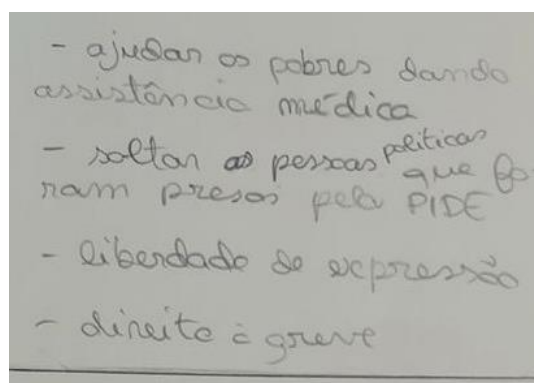 - ajudar os pobres dando
assistência médica
- soltar as pessoas políticas que fo-
ram presas pela PIDE
- liberdade de expressão
- direito à greve